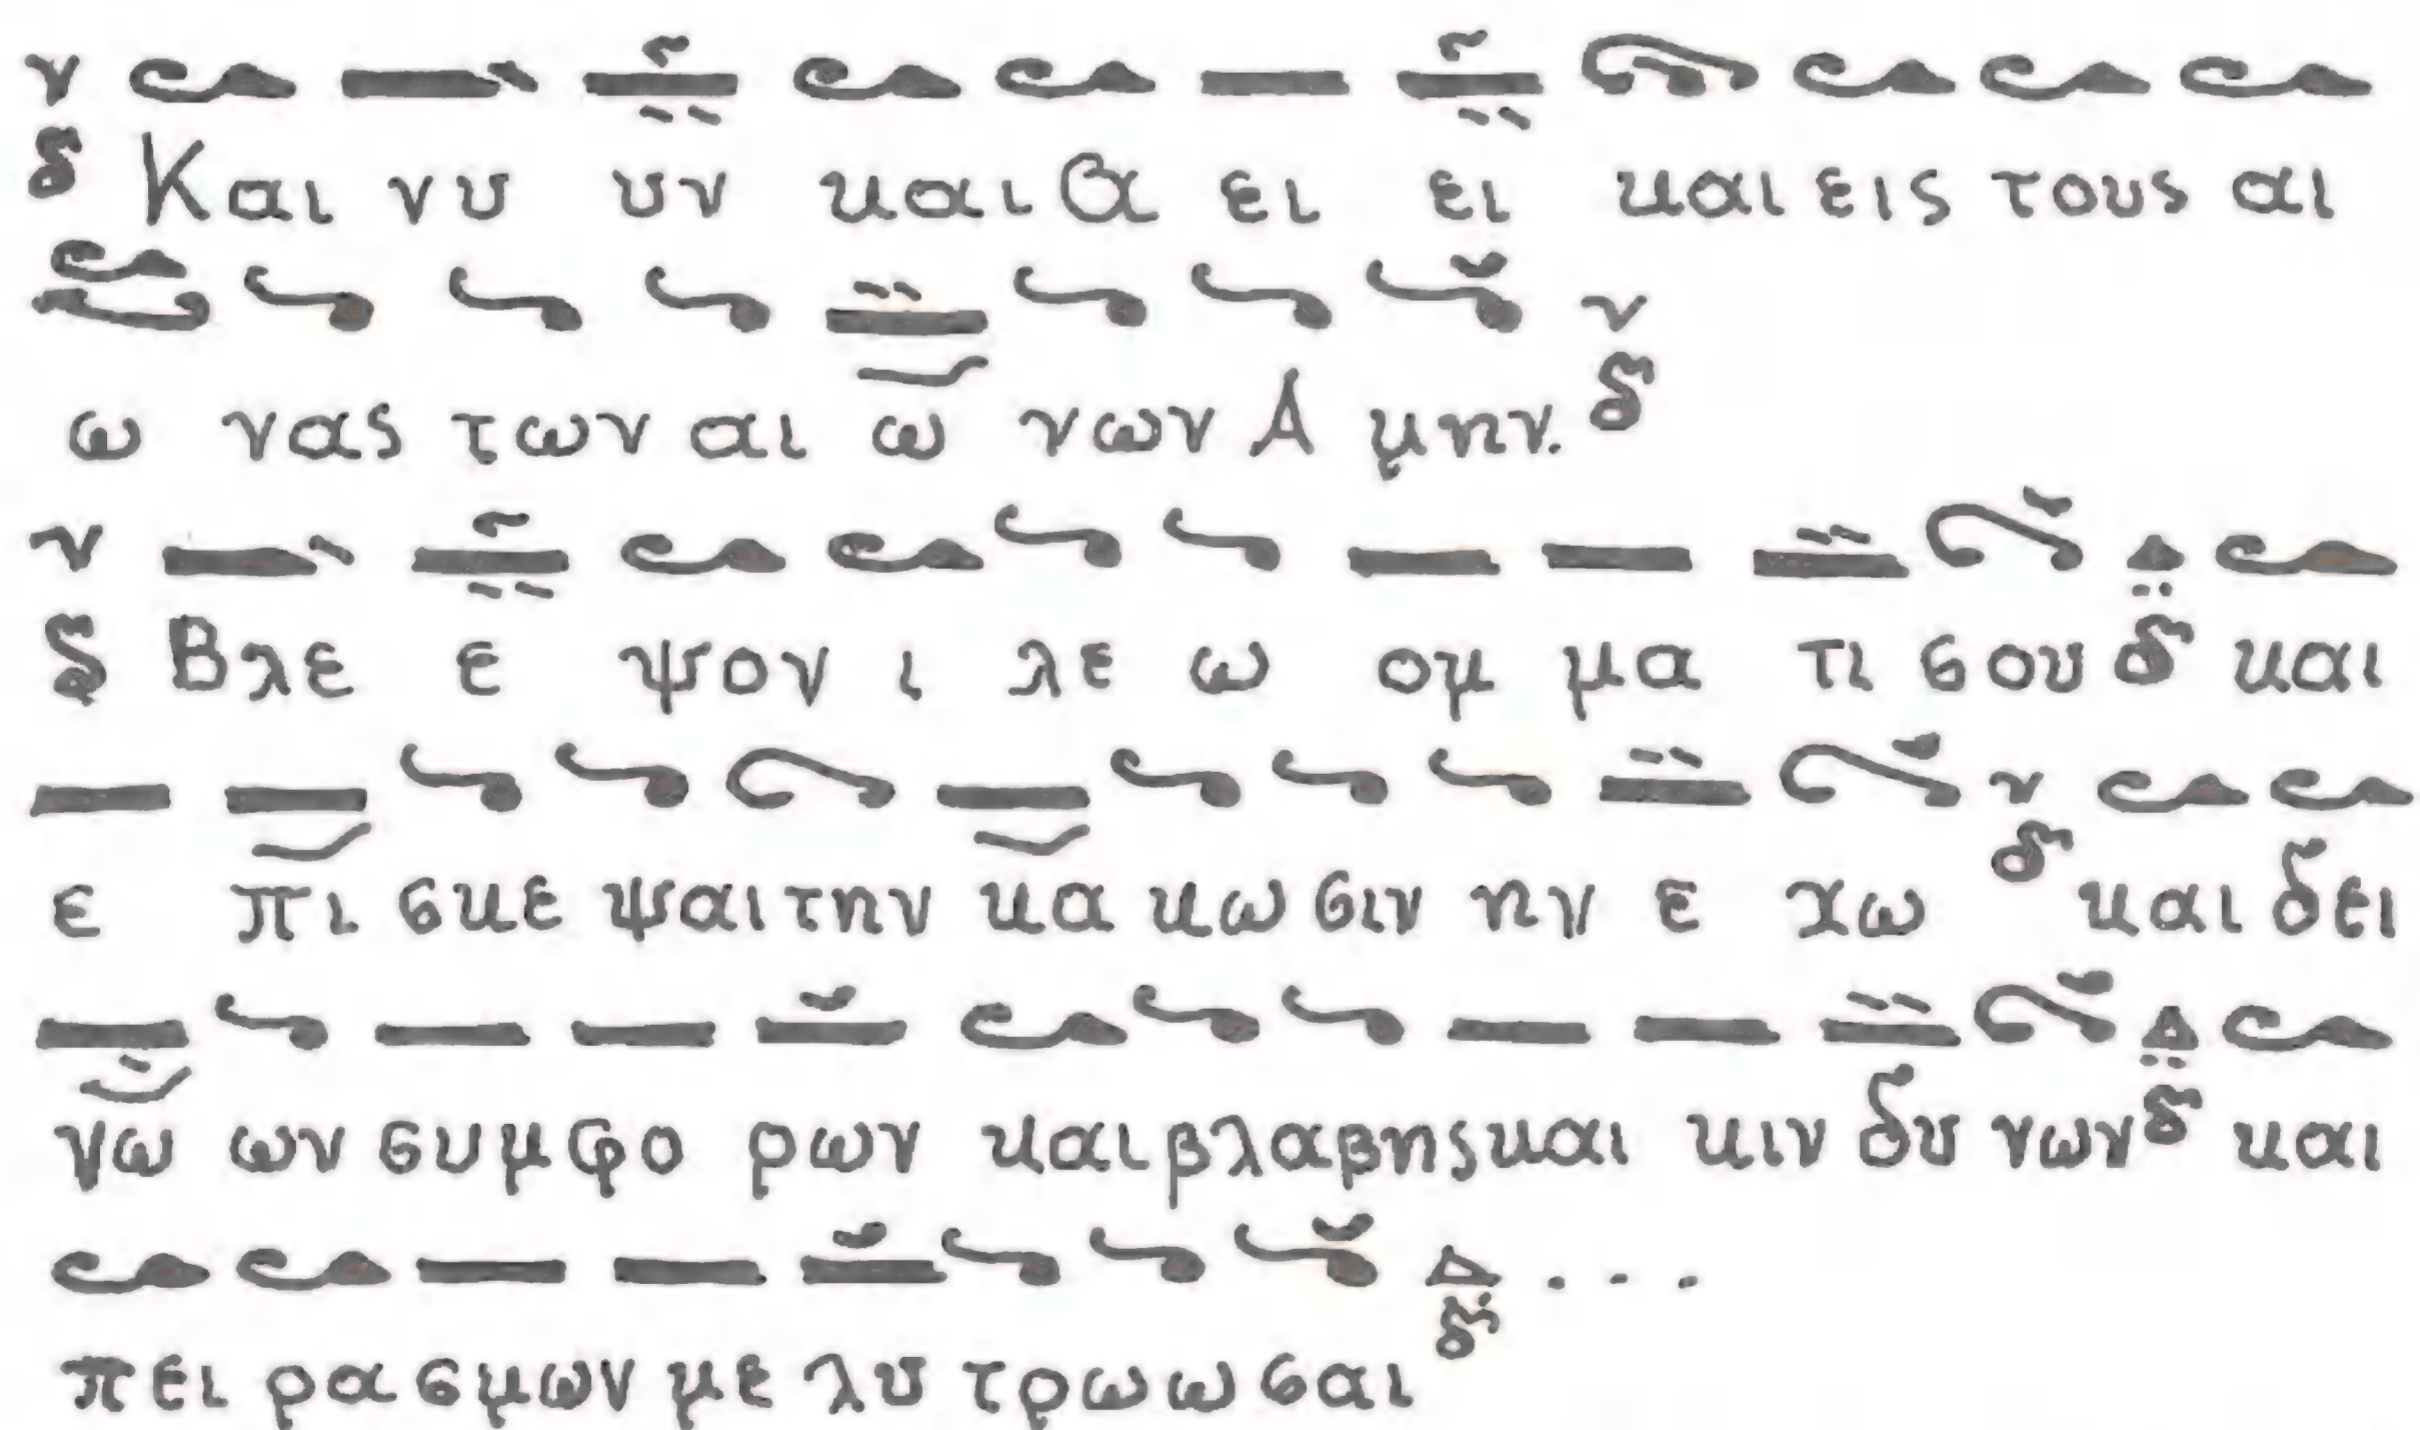 ν δ Και νυ υν και α ει ει και εις τους αι
ω νας των αι ω νων Α μην. ν δ
ν δ Βλε ε ψον ι λε ω ομ μα τι σου Δ δ και
ε πι σκε ψαι την κα κω σιν ην ε χω ν δ και δει
νω ων συμ φο ρων και βλα βης και κιν δυ νων Δ δ και
πει ρα σμων με λυ τρω ω σαι Δ δ ...